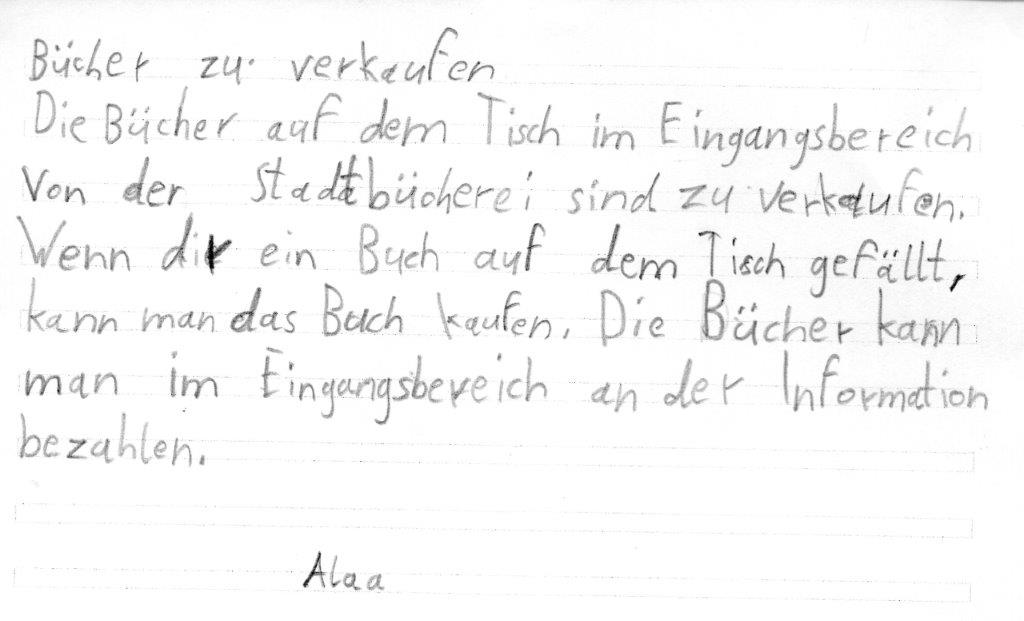 Bücher zu verkaufen
Die Bücher auf dem Tisch im Eingangsbereich
Von der Stadtbücherei sind zu verkaufen.
Wenn dir ein Buch auf dem Tisch gefällt,
kann man das Buch kaufen. Die Bücher kann
man im Eingangsbereich an der Information
bezahlen.
Alaa